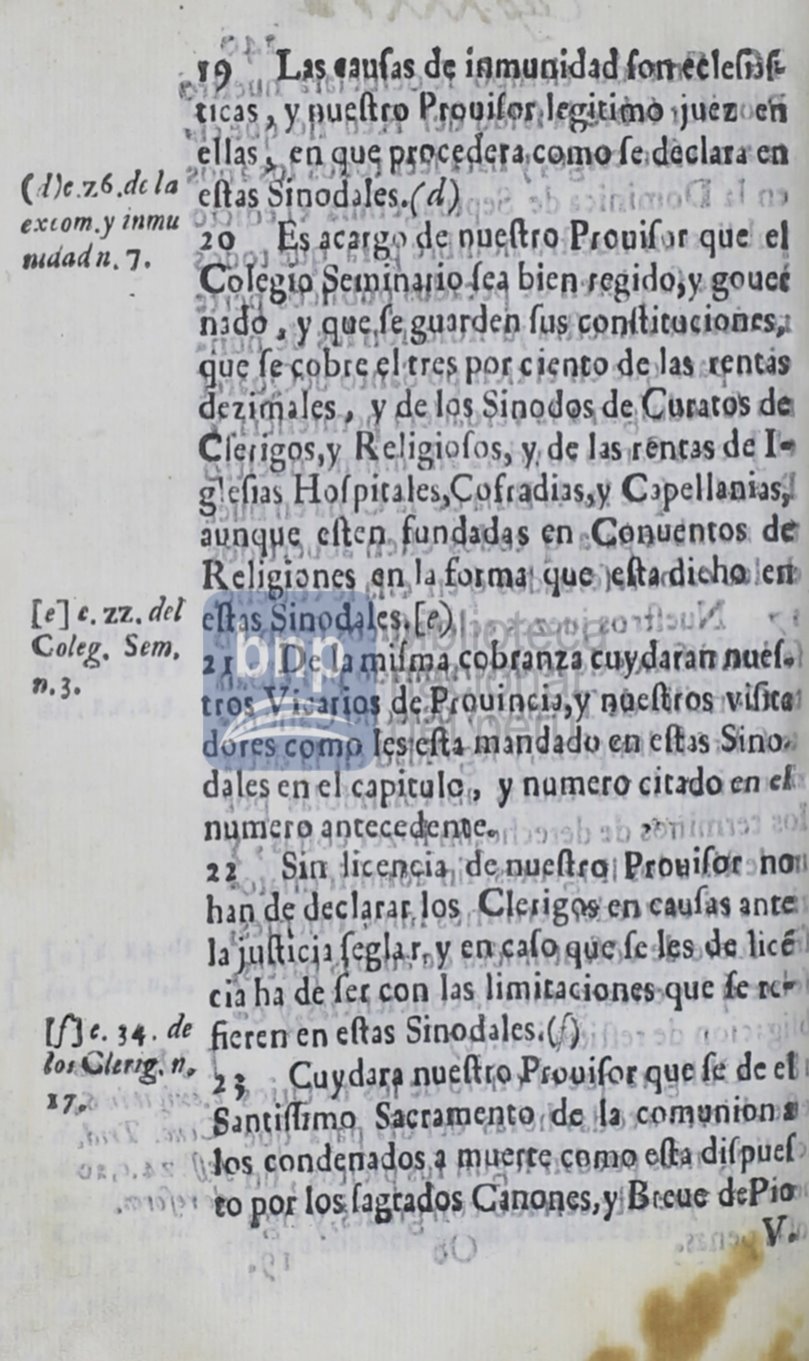 19 Las causas de inmunidad son eclesiàſ-
ticas, y nueſtro Prouiſor legitimo juez en
ellas, en que procedera como ſe declara en
(d) c. 26. de la
excom. y inmu
nidad n. 7.
eſtas Sinodales. (d)
20 Es acargo de nueſtro Prouiſor que el
Colegio Seminario ſea bien regido, y gouer
nado, y que ſe guarden ſus conſtituciones,
que ſe cobre el tres por ciento de las rentas
dezimales, y de los Sinodos de Curatos de
Clerigos, y Religioſos, y de las rentas de I-
gleſias Hoſpitales, Cofradias, y Capellanias,
aunque eſten fundadas en Conuentos de
Religiones en la forma que eſta dicho en
[e] c. 22. del
Coleg. Sem.
n. 3.
eſtas Sinodales. [e)
21 De la miſma cobranza cuydaran nueſ-
tros Vicarios de Prouincia, y nueſtros viſita
dores como les eſta mandado en eſtas Sino-
dales en el capitulo, y numero citado en el
numero antecedente.
22 Sin licencia de nueſtro Prouiſor no
han de declarar los Clerigos en cauſas ante
la juſticia ſeglar, y en caſo que ſe les de licẽ
cia ha de ſer con las limitaciones que ſe re-
[f] c. 34. de
los Clerig. n.
17.
fieren en eſtas Sinodales. (f)
23 Cuydara nueſtro Prouiſor que ſe de el
Santiſſimo Sacramento de la comunion a
los condenados a muerte como eſta diſpueſ
to por los ſagrados Canones, y Breue de Pio
V.
bnp